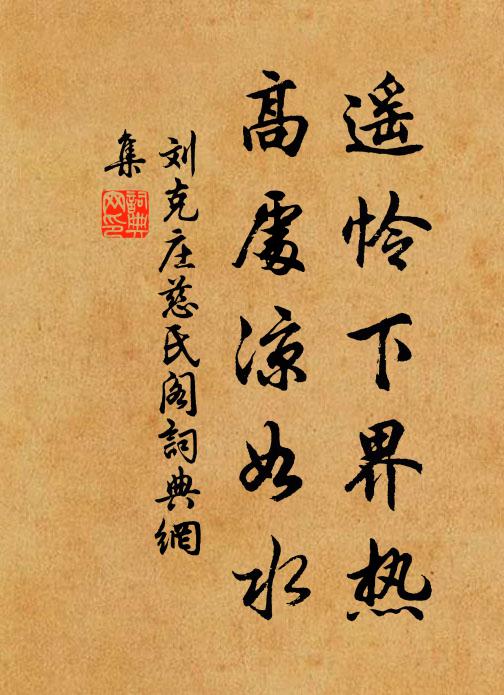 遥怜下界热
高處凉如水
刘克庄慈氏阁詞典網
集
詞典网印